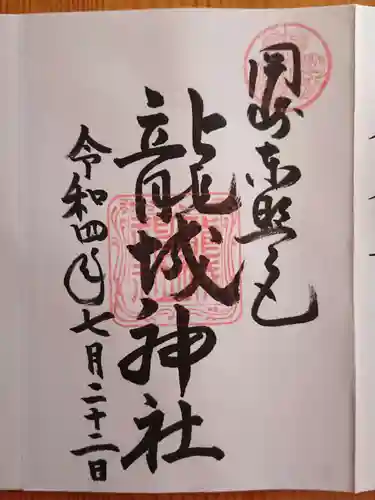 岡崎東照宮
龍城神社
令和四年七月二十二日